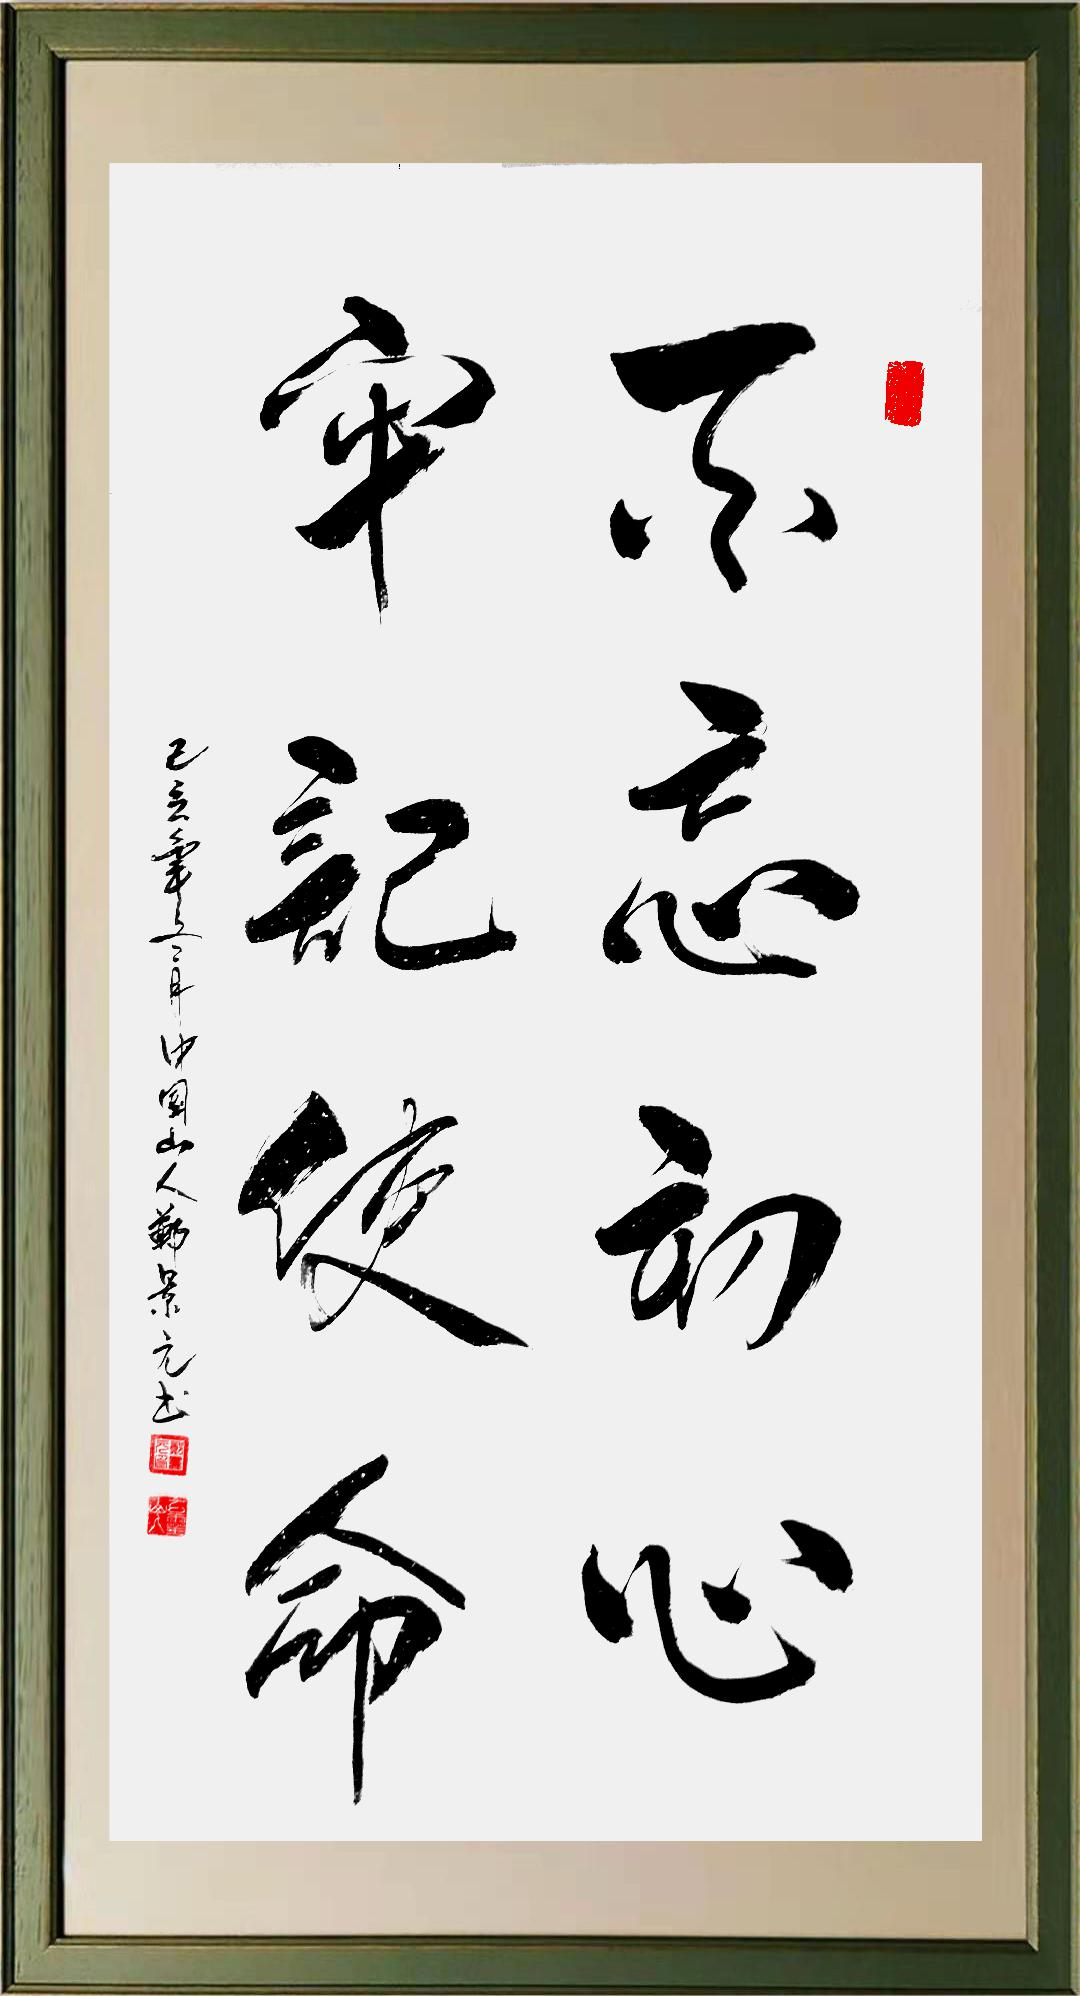 不忘初心
牢記使命
己亥年五月中國山人鄭景元书